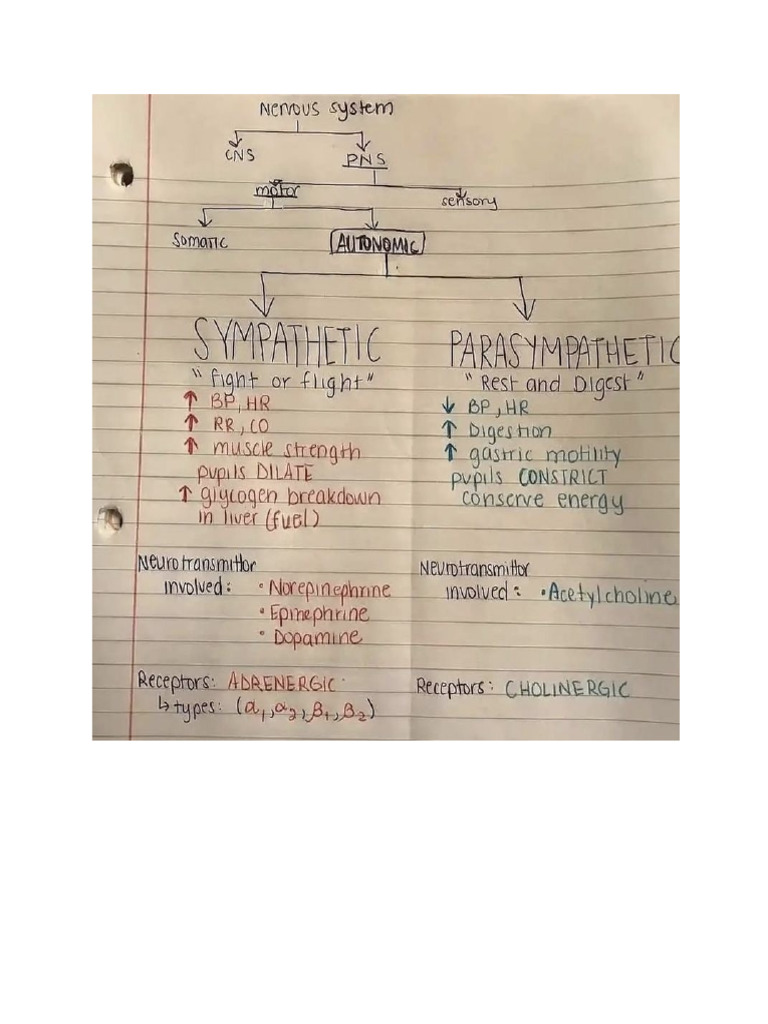 Nervous system
CNS
PNS
motor
sensory
Somatic
AUTONOMIC
SYMPATHETIC
"fight or flight"
↑ BP, HR
↑ RR, CO
↑ muscle strength
pupils DILATE
↑ glycogen breakdown
in liver (fuel)
Neurotransmittor
involved: • Norepinephrine
• Epinephrine
• Dopamine
Receptors: ADRENERGIC
↳ types: (α₁, α₂, β₁, β₂)
PARASYMPATHETIC
"Rest and Digest"
↓ BP, HR
↑ Digestion
↑ gastric motility
pupils CONSTRICT
conserve energy
Neurotransmittor
involved: • Acetylcholine
Receptors: CHOLINERGIC